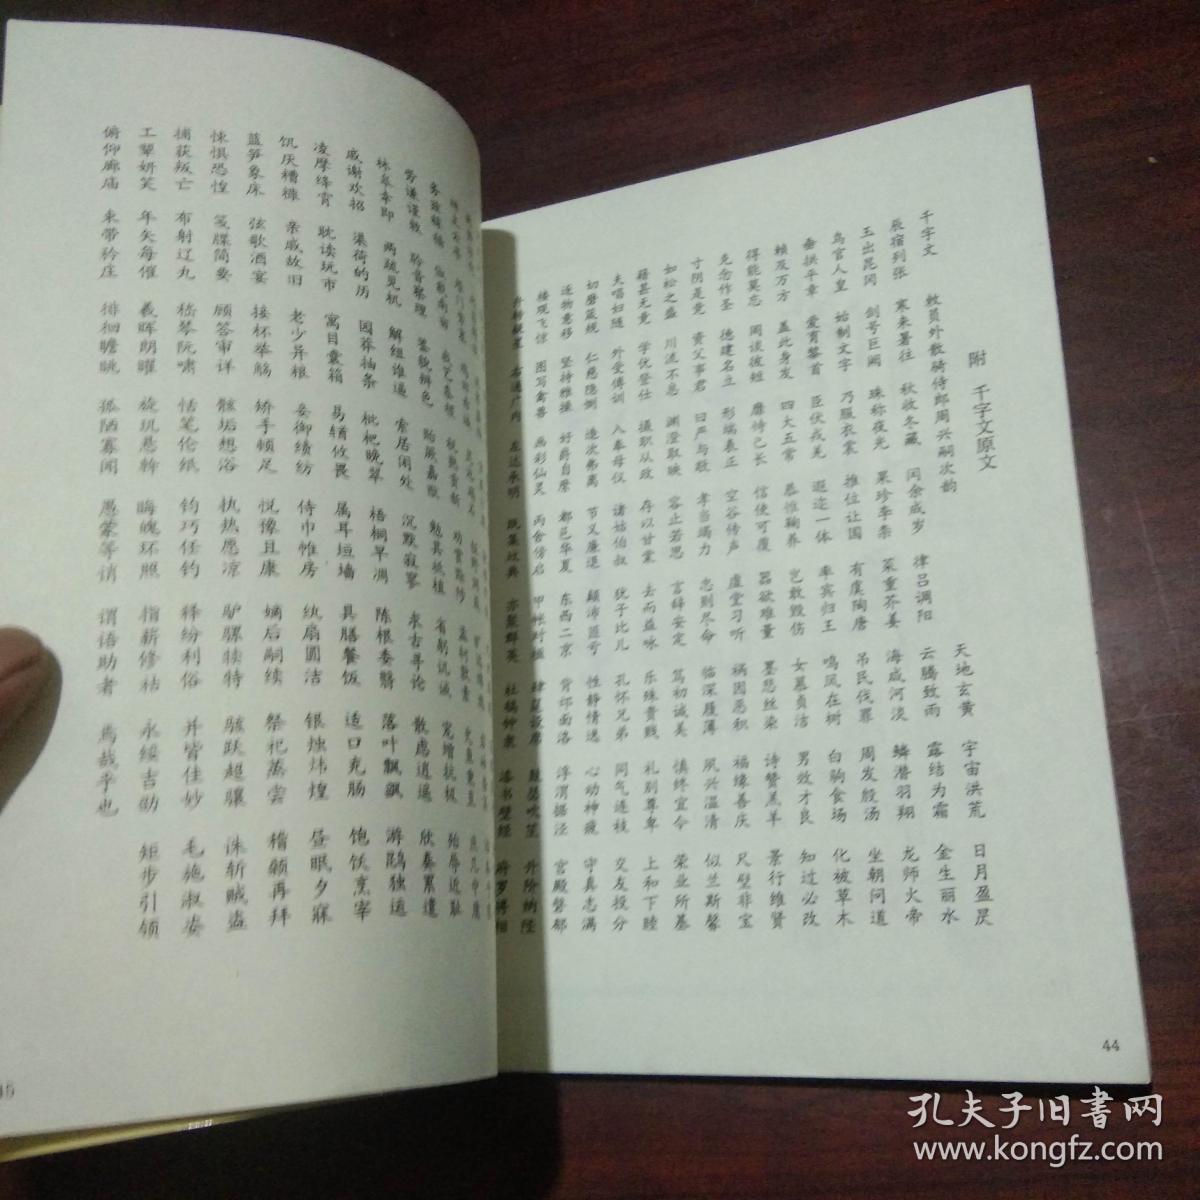 附 千字文原文
千字文 敕员外散骑侍郎周兴嗣次韵 天地玄黄 宇宙洪荒 日月盈昃
辰宿列张 寒来暑往 秋收冬藏 闰余成岁 律吕调阳 云腾致雨 露结为霜 金生丽水
玉出昆冈 剑号巨阙 珠称夜光 果珍李柰 菜重芥姜 海咸河淡 鳞潜羽翔 龙师火帝
鸟官人皇 始制文字 乃服衣裳 推位让国 有虞陶唐 吊民伐罪 周发殷汤 坐朝问道
垂拱平章 爱育黎首 臣伏戎羌 遐迩一体 率宾归王 鸣凤在树 白驹食场 化被草木
赖及万方 盖此身发 四大五常 恭惟鞠养 岂敢毁伤 女慕贞洁 男效才良 知过必改
得能莫忘 罔谈彼短 靡恃己长 信使可覆 器欲难量 墨悲丝染 诗赞羔羊 景行维贤
克念作圣 德建名立 形端表正 空谷传声 虚堂习听 祸因恶积 福缘善庆 尺璧非宝
寸阴是竞 资父事君 曰严与敬 孝当竭力 忠则尽命 临深履薄 夙兴温清 似兰斯馨
如松之盛 川流不息 渊澄取映 容止若思 言辞安定 笃初诚美 慎终宜令 荣业所基
籍甚无竟 学优登仕 摄职从政 存以甘棠 去而益咏 乐殊贵贱 礼别尊卑 上和下睦
夫唱妇随 外受傅训 入奉母仪 诸姑伯叔 犹子比儿 孔怀兄弟 同气连枝 交友投分
切磨箴规 仁慈隐恻 造次弗离 节义廉退 颠沛匪亏 性静情逸 心动神疲 守真志满
逐物意移 坚持雅操 好爵自縻 都邑华夏 东西二京 背邙面洛 浮渭据泾 宫殿盘郁
楼观飞惊 图写禽兽 画彩仙灵 丙舍傍启 甲帐对楹 肆筵设席 鼓瑟吹笙 升阶纳陛
右通广内 左达承明 既集坟典 亦聚群英 杜稿钟隶 漆书壁经 府罗将相
44
我艺黍稷 税熟贡新 劝赏黜陟 孟轲敦素 史鱼秉直 庶几中庸
劳谦谨敕 聆音察理 鉴貌辨色 贻厥嘉猷 勉其祗植 省躬讥诫 宠增抗极 殆辱近耻
林皋幸即 两疏见机 解组谁逼 索居闲处 沉默寂寥 求古寻论 散虑逍遥 欣奏累遣
戚谢欢招 渠荷的历 园莽抽条 枇杷晚翠 梧桐早凋 陈根委翳 落叶飘飖 游鹍独运
凌摩绛霄 耽读玩市 寓目囊箱 易輶攸畏 属耳垣墙 具膳餐饭 适口充肠 饱饫烹宰
饥厌糟糠 亲戚故旧 老少异粮 妾御绩纺 侍巾帷房 纨扇圆洁 银烛炜煌 昼眠夕寐
蓝笋象床 弦歌酒宴 接杯举觞 矫手顿足 悦豫且康 嫡后嗣续 祭祀蒸尝 稽颡再拜
悚惧恐惶 笺牒简要 顾答审详 骸垢想浴 执热愿凉 驴骡犊特 骇跃超骧 诛斩贼盗
捕获叛亡 布射辽丸 嵇琴阮啸 恬笔伦纸 钧巧任钓 释纷利俗 并皆佳妙 毛施淑姿
工颦妍笑 年矢每催 羲晖朗曜 旋玑悬斡 晦魄环照 指薪修祜 永绥吉劭 矩步引领
俯仰廊庙 束带矜庄 徘徊瞻眺 孤陋寡闻 愚蒙等诮 谓语助者 焉哉乎也
孔夫子旧书网
www.kongfz.com